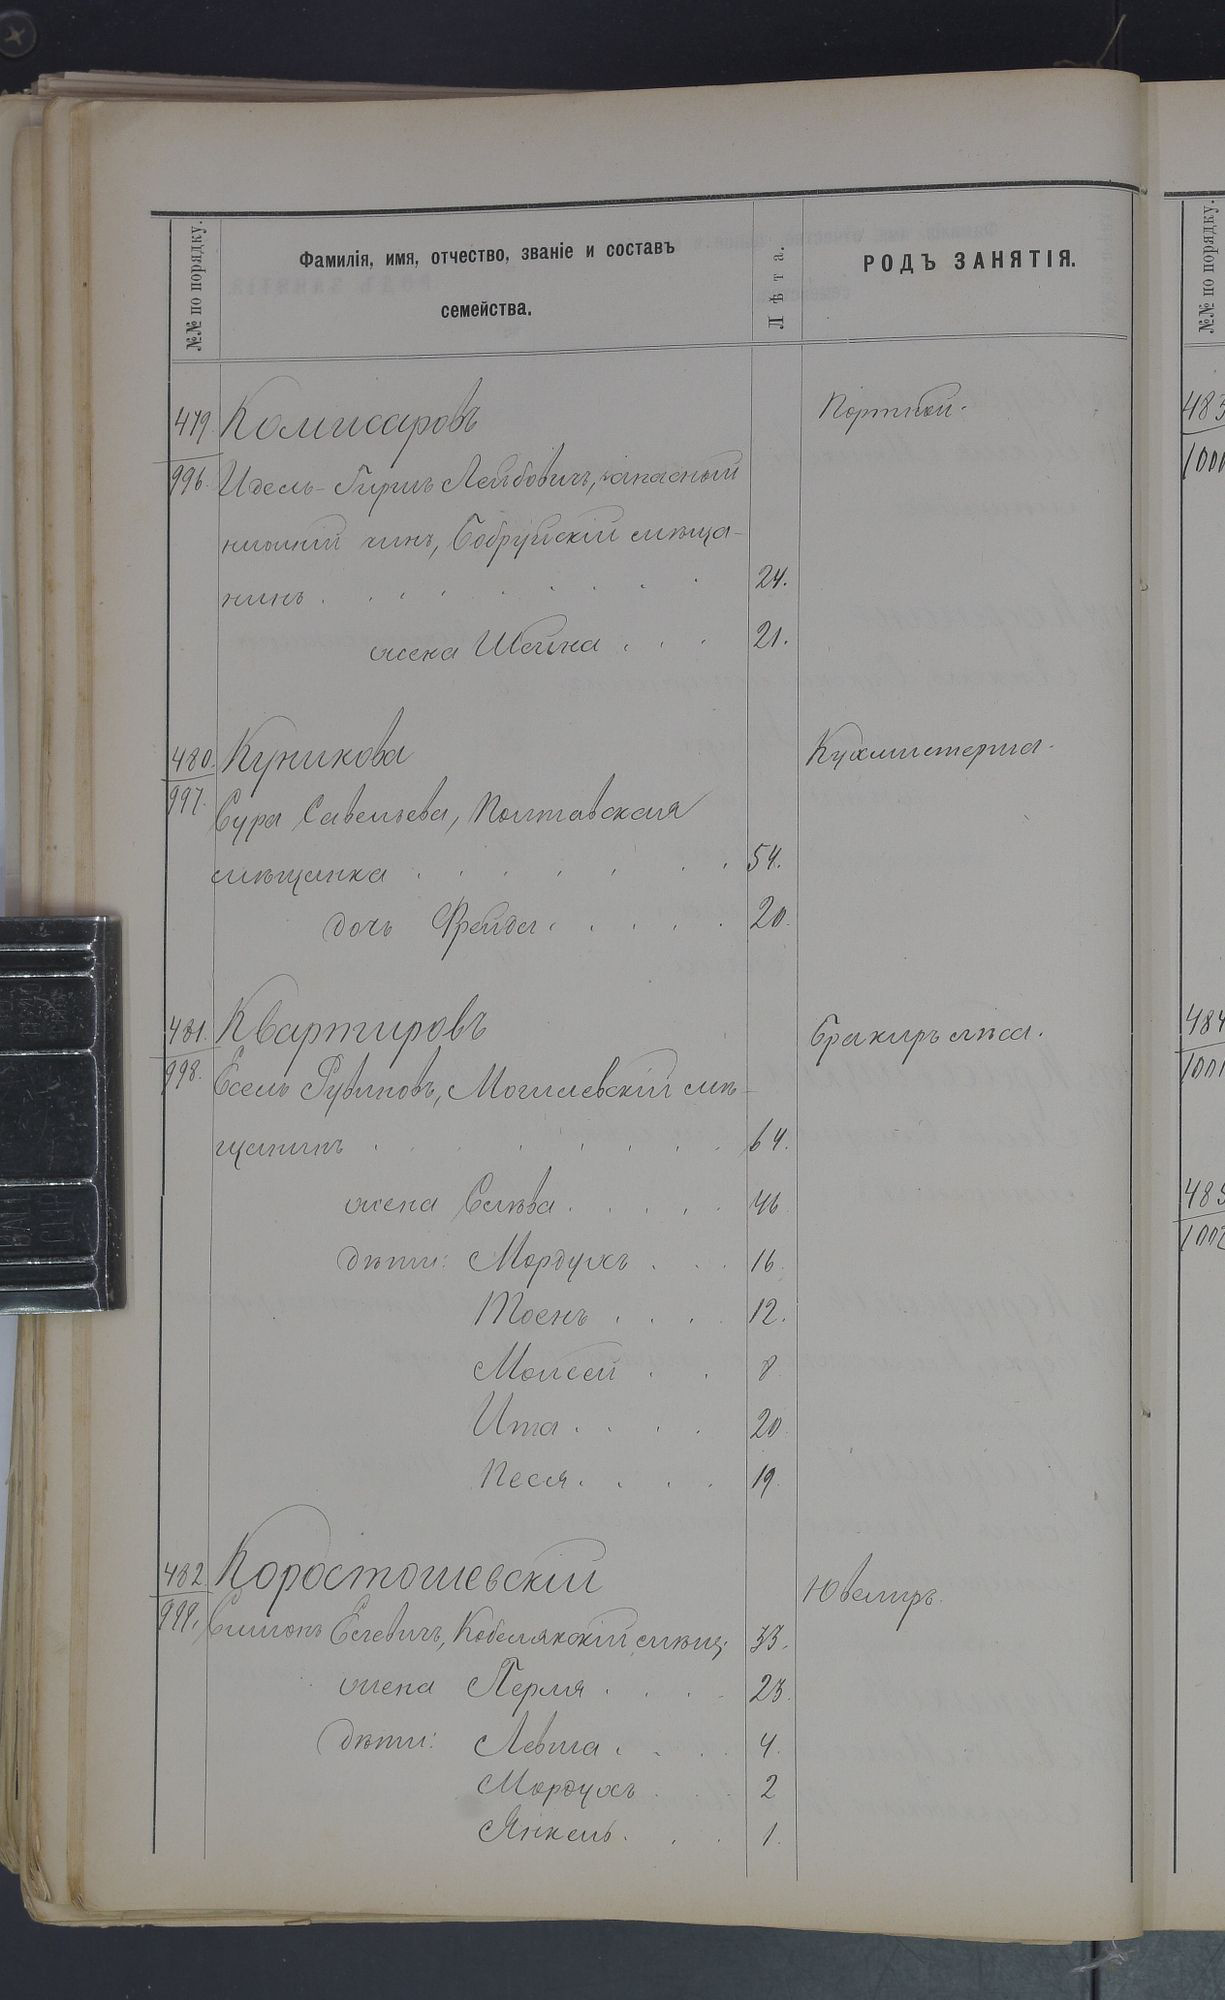 №№ по порядку.
Фамилія, имя, отчество, званіе и составъ
семейства.
Лѣта.
РОДЪ ЗАНЯТІЯ.
479. Комисаровъ Портной.
996. Идель-Гиршъ Лейбовичъ, запасный
нижній чинъ, Бобруйскій мѣща-
нинъ . . . . . . . 24.
жена Шейна . . . 21.
480. Куникова Кухмистерша.
997. Сура Савельева, Полтавская
мѣщанка . . . . . . . 54.
дочь Фрейда . . . . . 20.
481. Квартировъ Бракиръ лѣса.
998. Есель Рувиновъ, Могилевскій мѣ-
щанинъ . . . . . . . 64.
жена Слава . . . . . 46
дѣти: Мордухъ . . . 16.
12.
Моисей . . 8
Ита . . . . 20.
Песя . . . . 19.
482 Коростошевскій Ювелиръ.
999. Симонъ Евлевичъ, Кобелякскій мѣщ. 33.
жена Перля . . . . 23.
дѣти: . . . . 4.
Мордухъ . . 2
Янкель . . . 1.
№№ по порядку.
483
1000
484
1001
485
1002